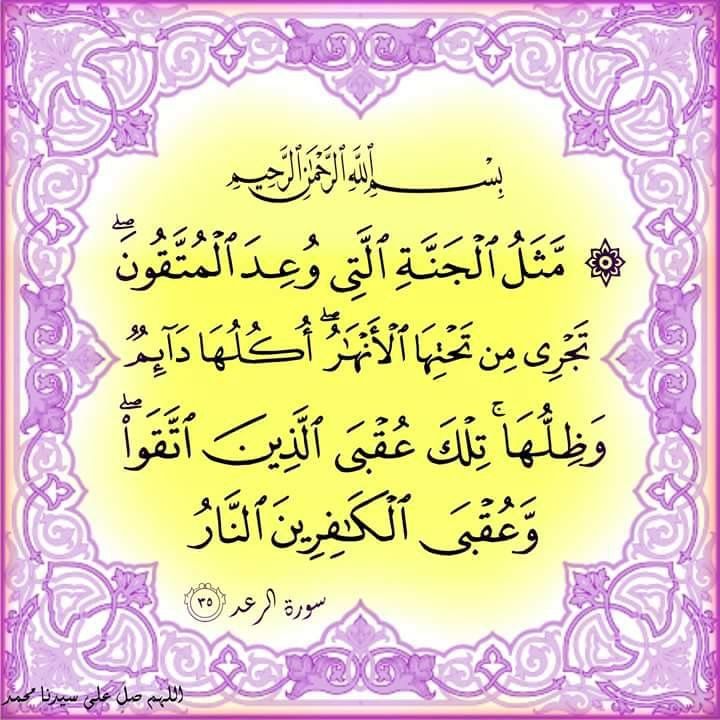 بِسْمِ ٱللَّهِ ٱلرَّحْمَٰنِ ٱلرَّحِيمِ
۞ مَّثَلُ ٱلْجَنَّةِ ٱلَّتِى وُعِدَ ٱلْمُتَّقُونَ ۖ
تَجْرِى مِن تَحْتِهَا ٱلْأَنْهَٰرُ ۖ أُكُلُهَا دَآئِمٌ
وَظِلُّهَا ۚ تِلْكَ عُقْبَى ٱلَّذِينَ ٱتَّقَوا۟ ۖ
وَّعُقْبَى ٱلْكَٰفِرِينَ ٱلنَّارُ
سورة الرعد ٣٥
اللهم صل على سيدنا محمد